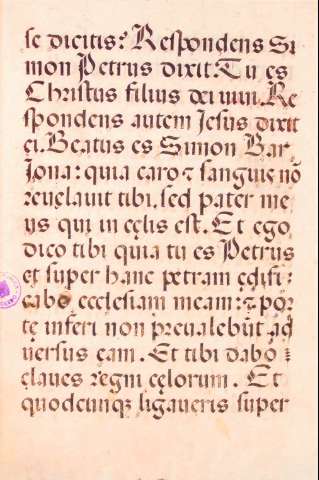 se dicitis? Respondens Si
mon Petrus dixit: Tu es
Christus filius dei uiui. Re
spondens autem Jesus dixit
ei. Beatus es Simon Bar
Jona: quia caro ⁊ sanguis nō
reuelauit tibi, sed pater me
us qui in cęlis est. Et ego
dico tibi quia tu es Petrus
et super hanc petram ędifi:
cabo ecclesiam meam: ⁊ por
tę inferi non preualebūt ad
uersus eam. Et tibi dabo
claues regni cęlorum. Et
quodcunqꝫ ligaueris super